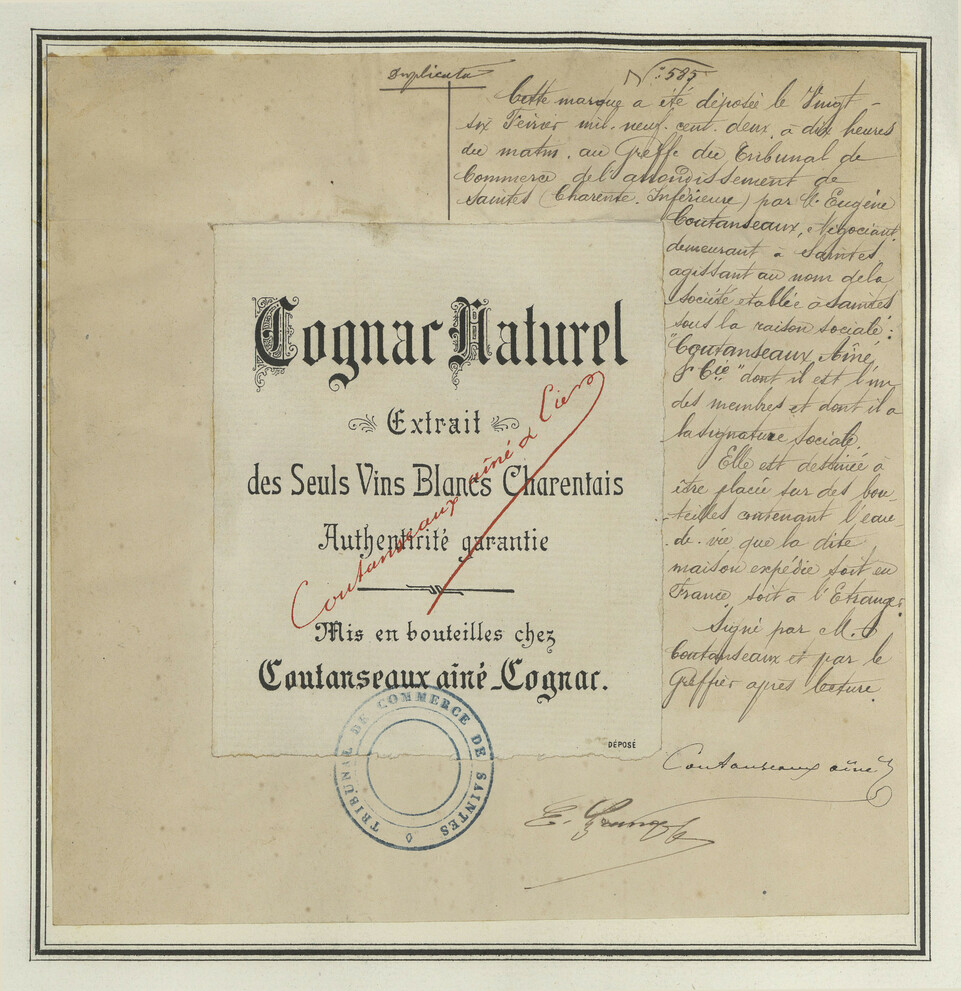 Duplicata
N° 585
Cette marque a été déposée le Vingt-
six Février mil. neuf. cent. deux. à dix heures
du matin. au Greffe du Tribunal de
Commerce de l'arrondissement de
Saintes (Charente. Inférieure) par M. Eugène
Coutanseaux, Négociant,
demeurant à Saintes
agissant au nom de la
Société établie à Saintes
sous la raison sociale:
"Coutanseaux Aîné
& Cie" dont il est l'un
des membres et dont il a
la signature sociale.
Elle est destinée à
être placée sur des bou-
teilles contenant l'eau-
de-vie que la dite
maison expédie soit en
France, soit à l'Etranger.
Signé par M.
Coutanseaux et par le
Greffier après lecture.
Coutanseaux aîné
Cognac Naturel
Extrait
des Seuls Vins Blancs Charentais
Authenticité garantie
Coutanseaux aîné & Cie
Mis en bouteilles chez
Coutanseaux aîné_Cognac.
DÉPOSÉ
TRIBUNAL DE COMMERCE DE SAINTES